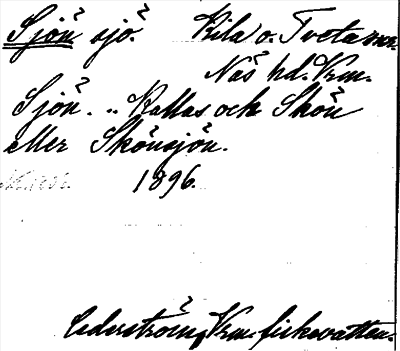 Sjön sjö. Kila o. Tveta snr.
Näs hd. Krm.
Sjön. „ Kallas och Skön
eller Skönsjön.
1896.
Cederström, Krm. fiskevatten.